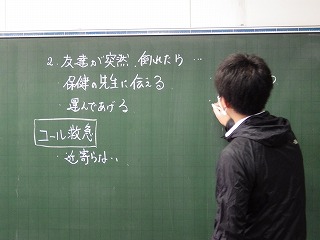 2. 友達が突然、倒れたら…
・保健の先生に伝える
・運んであげる
コール救急
・近寄らない、